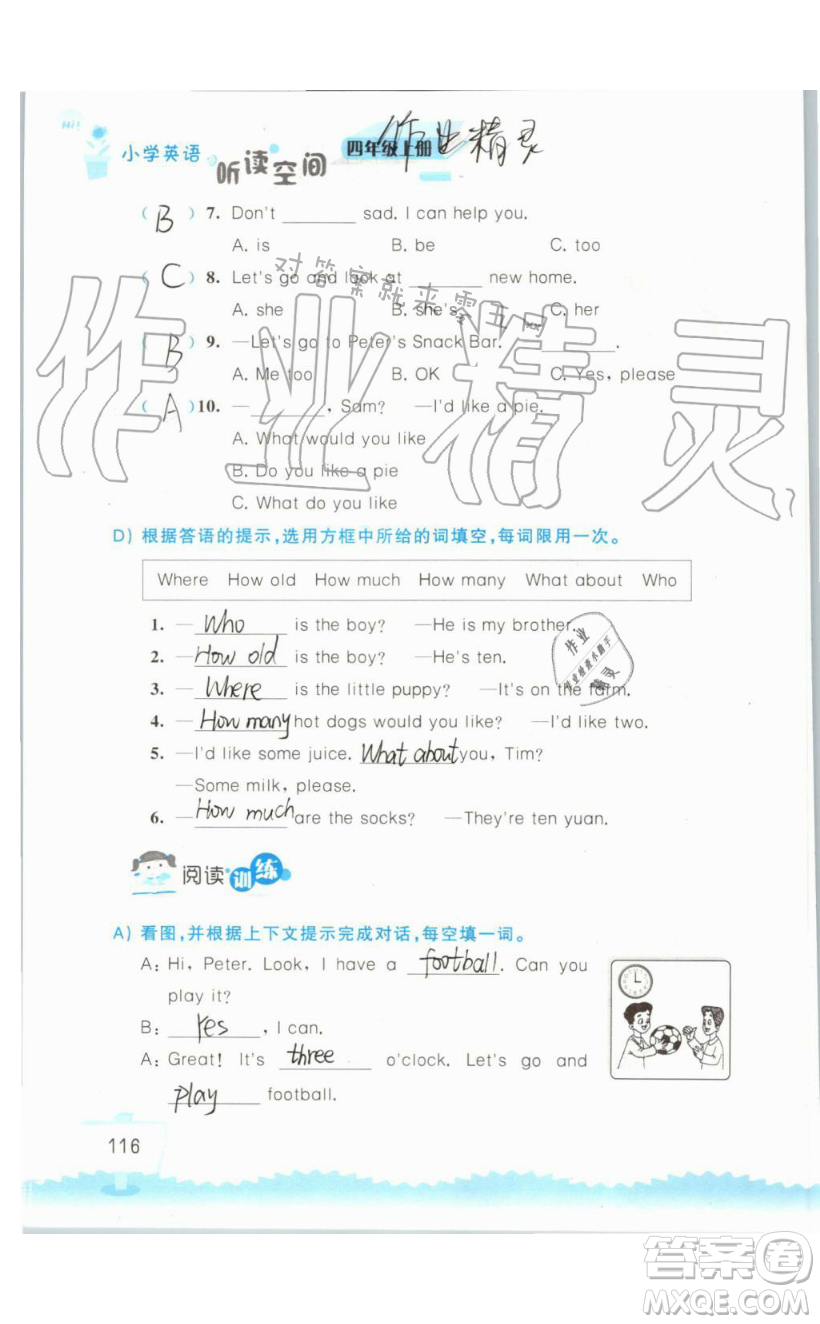 Hi!
小学英语 听读空间 四年级上册 作业精灵
( B ) 7. Don't ________ sad. I can help you.
A. is B. be C. too
( C ) 8. Let's go and look at ________ new home.
A. she B. she's C. her
( B ) 9. —Let's go to Peter's Snack Bar. ________.
A. Me too B. OK C. Yes, please
( A )10. —________, Sam? —I'd like a pie.
A. What would you like
B. Do you like a pie
C. What do you like
对答案就来零五网
作业精灵
D) 根据答语的提示,选用方框中所给的词填空,每词限用一次。
Where How old How much How many What about Who
1. — Who is the boy? —He is my brother.
2. — How old is the boy? —He's ten.
3. — Where is the little puppy? —It's on the farm.
4. — How many hot dogs would you like? —I'd like two.
5. —I'd like some juice. What about you, Tim?
—Some milk, please.
6. — How much are the socks? —They're ten yuan.
作业
精灵
阅读训练
A) 看图,并根据上下文提示完成对话,每空填一词。
A: Hi, Peter. Look, I have a football. Can you
play it?
B: Yes, I can.
A: Great! It's three o'clock. Let's go and
play football.
116
答案卷
MXQE.COM